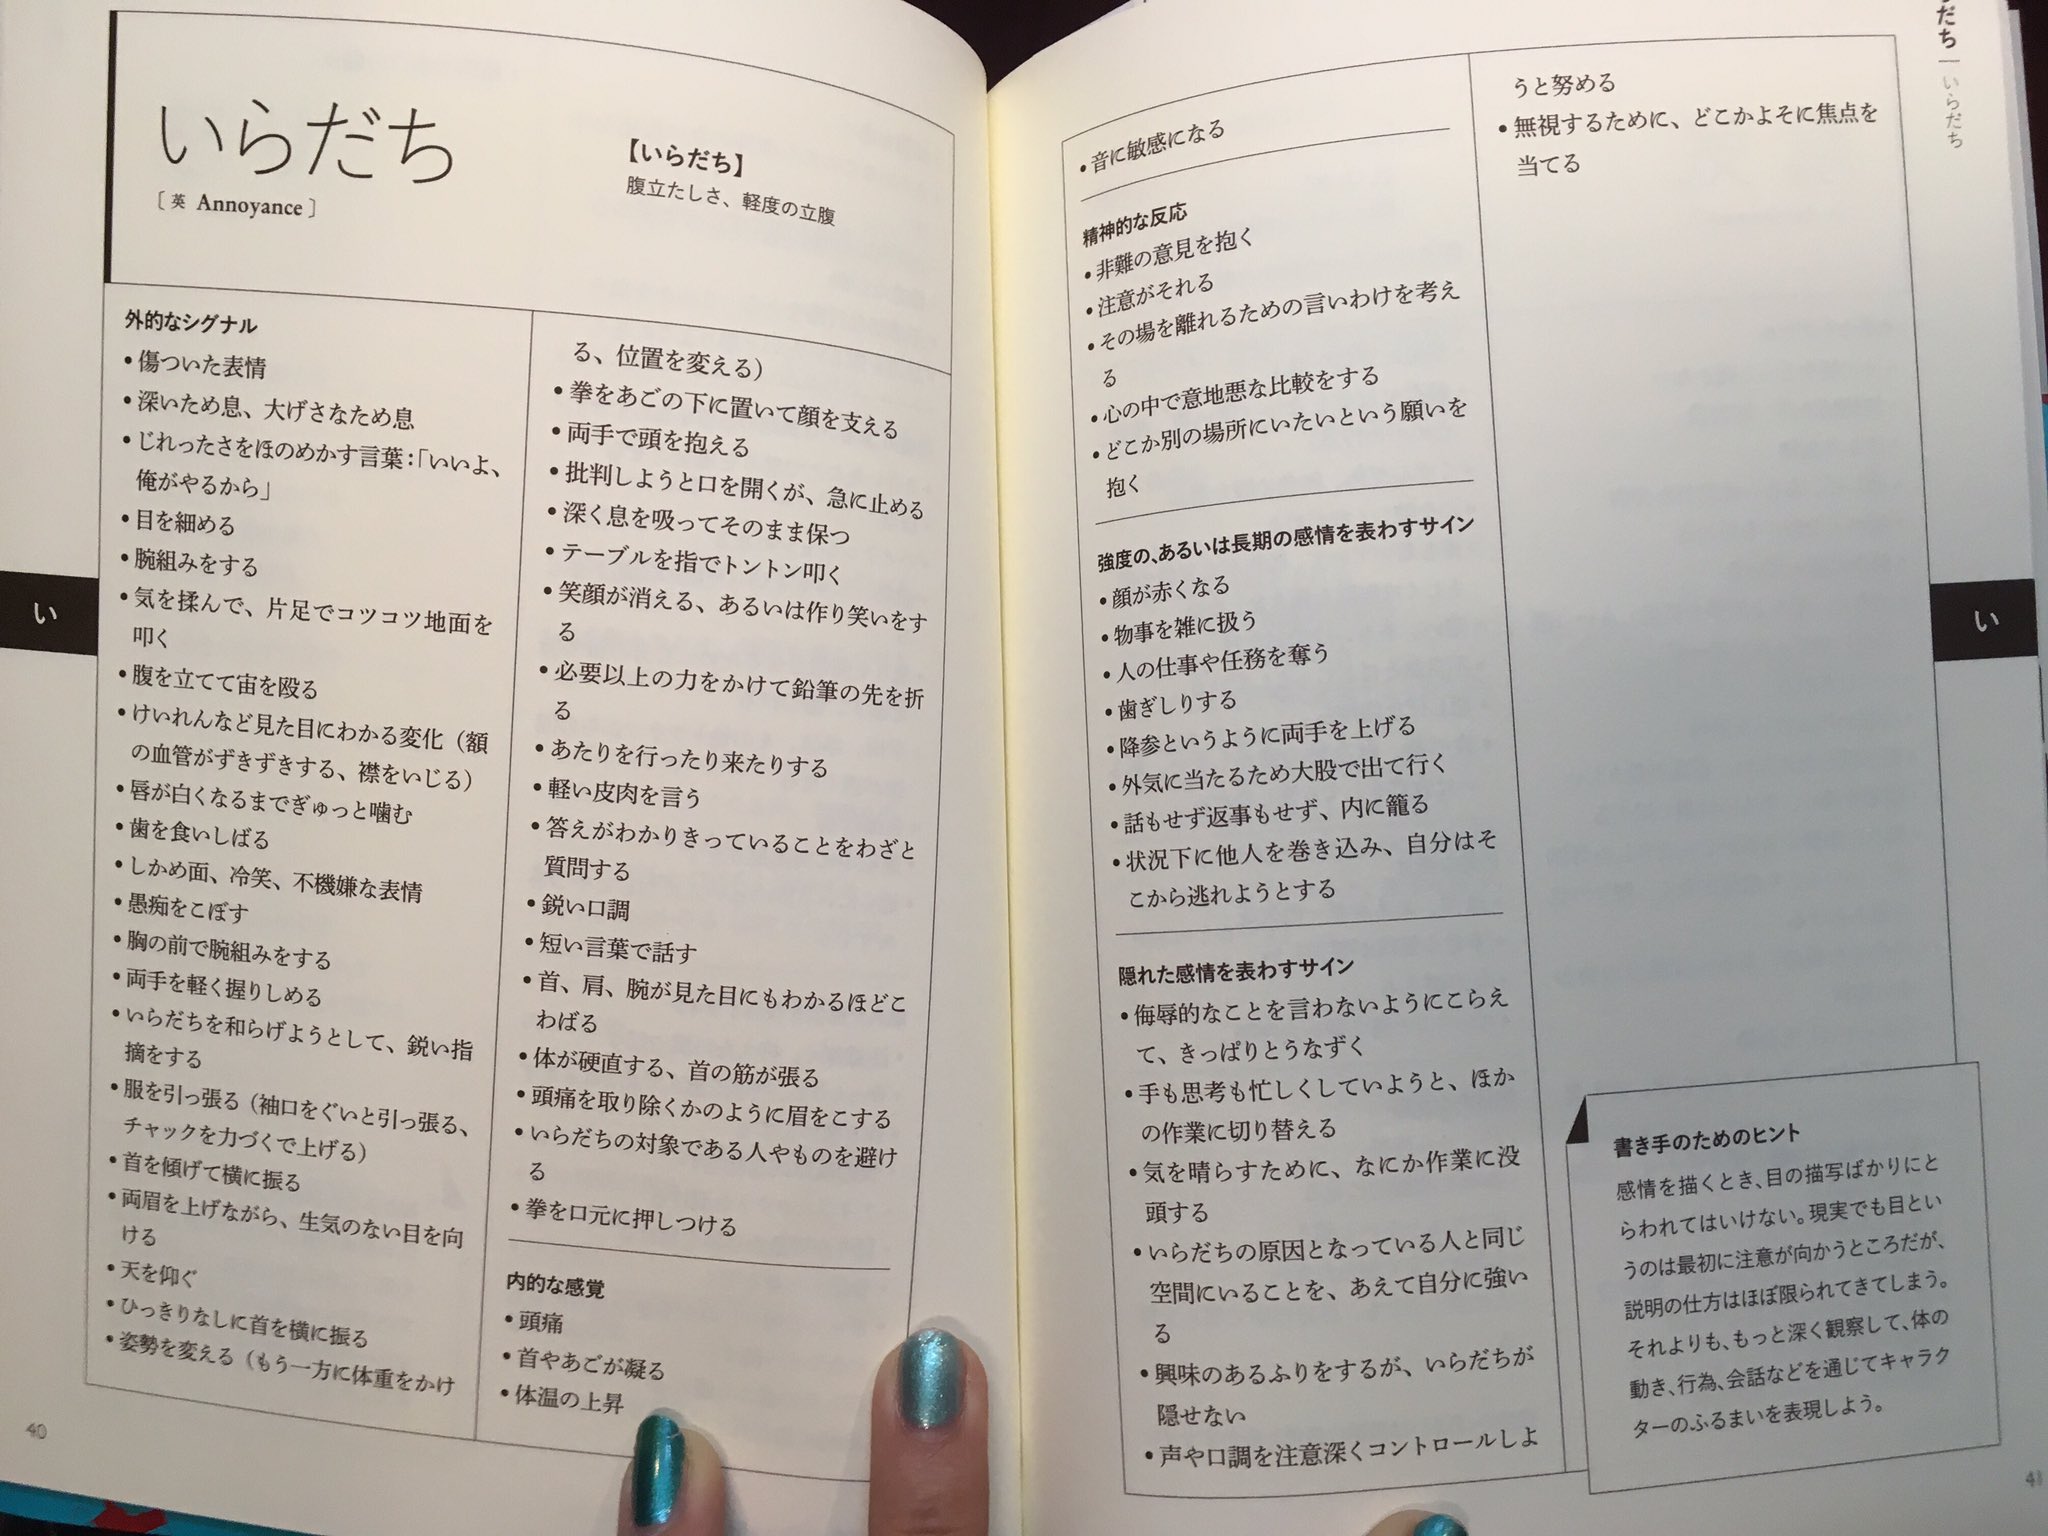 いらだち
［英 Annoyance］
【いらだち】
腹立たしさ、軽度の立腹
外的なシグナル
•傷ついた表情
•深いため息、大げさなため息
•じれったさをほのめかす言葉：「いいよ、
俺がやるから」
•目を細める
•腕組みをする
•気を揉んで、片足でコツコツ地面を
叩く
•腹を立てて宙を殴る
•けいれんなど見た目にわかる変化（額
の血管がずきずきする、襟をいじる）
•唇が白くなるまでぎゅっと噛む
•歯を食いしばる
•しかめ面、冷笑、不機嫌な表情
•愚痴をこぼす
•胸の前で腕組みをする
•両手を軽く握りしめる
•いらだちを和らげようとして、鋭い指
摘をする
•服を引っ張る（袖口をぐいと引っ張る、
チャックを力づくで上げる）
•首を傾げて横に振る
•両眉を上げながら、生気のない目を向
ける
•天を仰ぐ
•ひっきりなしに首を横に振る
•姿勢を変える（もう一方に体重をかけ
る、位置を変える）
•拳をあごの下に置いて顔を支える
•両手で頭を抱える
•批判しようと口を開くが、急に止める
•深く息を吸ってそのまま保つ
•テーブルを指でトントン叩く
•笑顔が消える、あるいは作り笑いをす
る
•必要以上の力をかけて鉛筆の先を折
る
•あたりを行ったり来たりする
•軽い皮肉を言う
•答えがわかりきっていることをわざと
質問する
•鋭い口調
•短い言葉で話す
•首、肩、腕が見た目にもわかるほどこ
わばる
•体が硬直する、首の筋が張る
•頭痛を取り除くかのように眉をこする
•いらだちの対象である人やものを避け
る
•拳を口元に押しつける
内的な感覚
•頭痛
•首やあごが凝る
•体温の上昇
い
40
•音に敏感になる
精神的な反応
•非難の意見を抱く
•注意がそれる
•その場を離れるための言いわけを考え
る
•心の中で意地悪な比較をする
•どこか別の場所にいたいという願いを
抱く
強度の、あるいは長期の感情を表わすサイン
•顔が赤くなる
•物事を雑に扱う
•人の仕事や任務を奪う
•歯ぎしりする
•降参というように両手を上げる
•外気に当たるため大股で出て行く
•話もせず返事もせず、内に籠る
•状況下に他人を巻き込み、自分はそ
こから逃れようとする
隠れた感情を表わすサイン
•侮辱的なことを言わないようにこらえ
て、きっぱりとうなずく
•手も思考も忙しくしていようと、ほか
の作業に切り替える
•気を晴らすために、なにか作業に没
頭する
•いらだちの原因となっている人と同じ
空間にいることを、あえて自分に強い
る
•興味のあるふりをするが、いらだちが
隠せない
•声や口調を注意深くコントロールしよ
うと努める
•無視するために、どこかよそに焦点を
当てる
書き手のためのヒント
感情を描くとき、目の描写ばかりにと
らわれてはいけない。現実でも目とい
うのは最初に注意が向かうところだが、
説明の仕方はほぼ限られてきてしまう。
それよりも、もっと深く観察して、体の
動き、行為、会話などを通じてキャラク
ターのふるまいを表現しよう。
だち｜いらだち
い
41